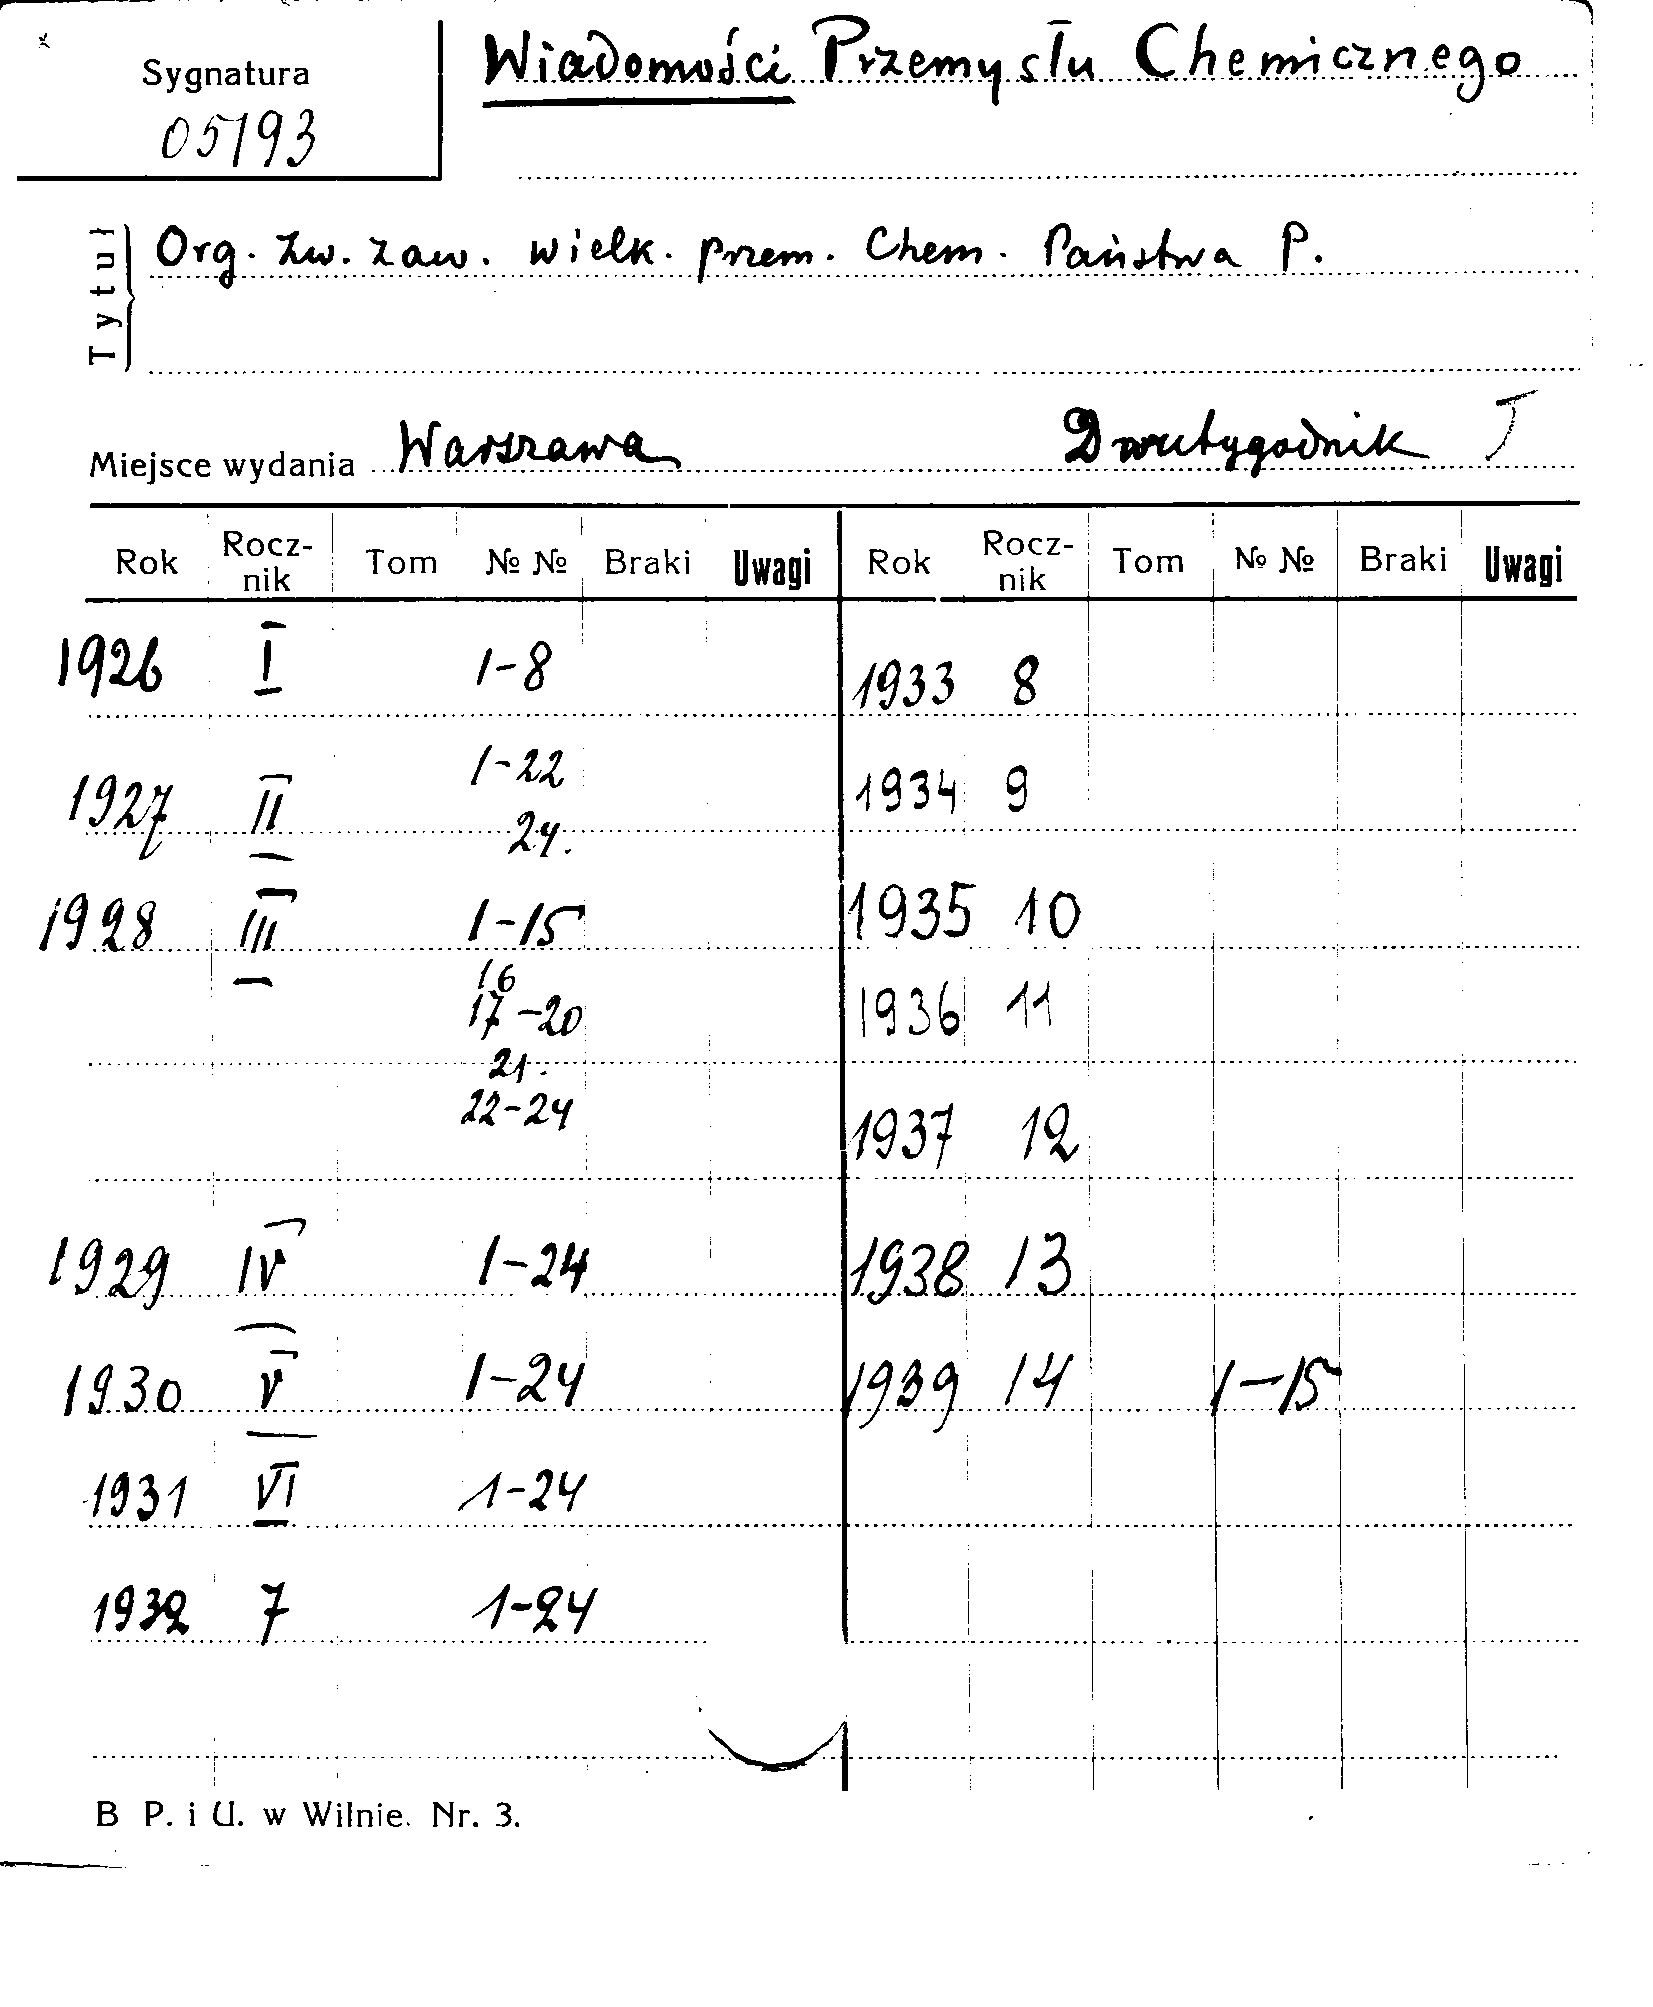 Sygnatura
05193
Wiadomości Przemysłu Chemicznego
Tytuł
Org. Zw. zaw. wielk. przem. Chem. Państwa P.
Miejsce wydania Warszawa Dwutygodnik T
Rok Rocz-nik Tom № № Braki Uwagi Rok Rocz-nik Tom № № Braki Uwagi
1926 I 1-8 1933 8
1927 II 1-22 1934 9
24.
1928 III 1-15 1935 10
16
17-20 1936 11
21.
22-24 1937 12
1929 IV 1-24 1938 13
1930 V 1-24 1939 14 1-15
1931 VI 1-24
1932 7 1-24
B P. i U. w Wilnie. Nr. 3.